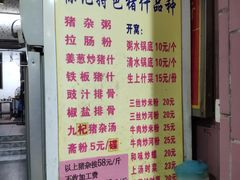 陈记特色猪什品种
猪杂粥
拉肠粉
姜葱炒猪什
铁板猪什
豉汁排骨
椒盐排骨
九杞猪杂汤
斋粉5元/碟
以上猪杂按58元/斤
不收加工费
开窝:
粥水锅底10元/个
清水锅底10元/个
生上什菜15元/份
三丝炒米粉20元
三丝炒河粉20元
牛肉炒米粉25元
牛肉炒河粉25元
和味炒螺20元
上汤时菜23元